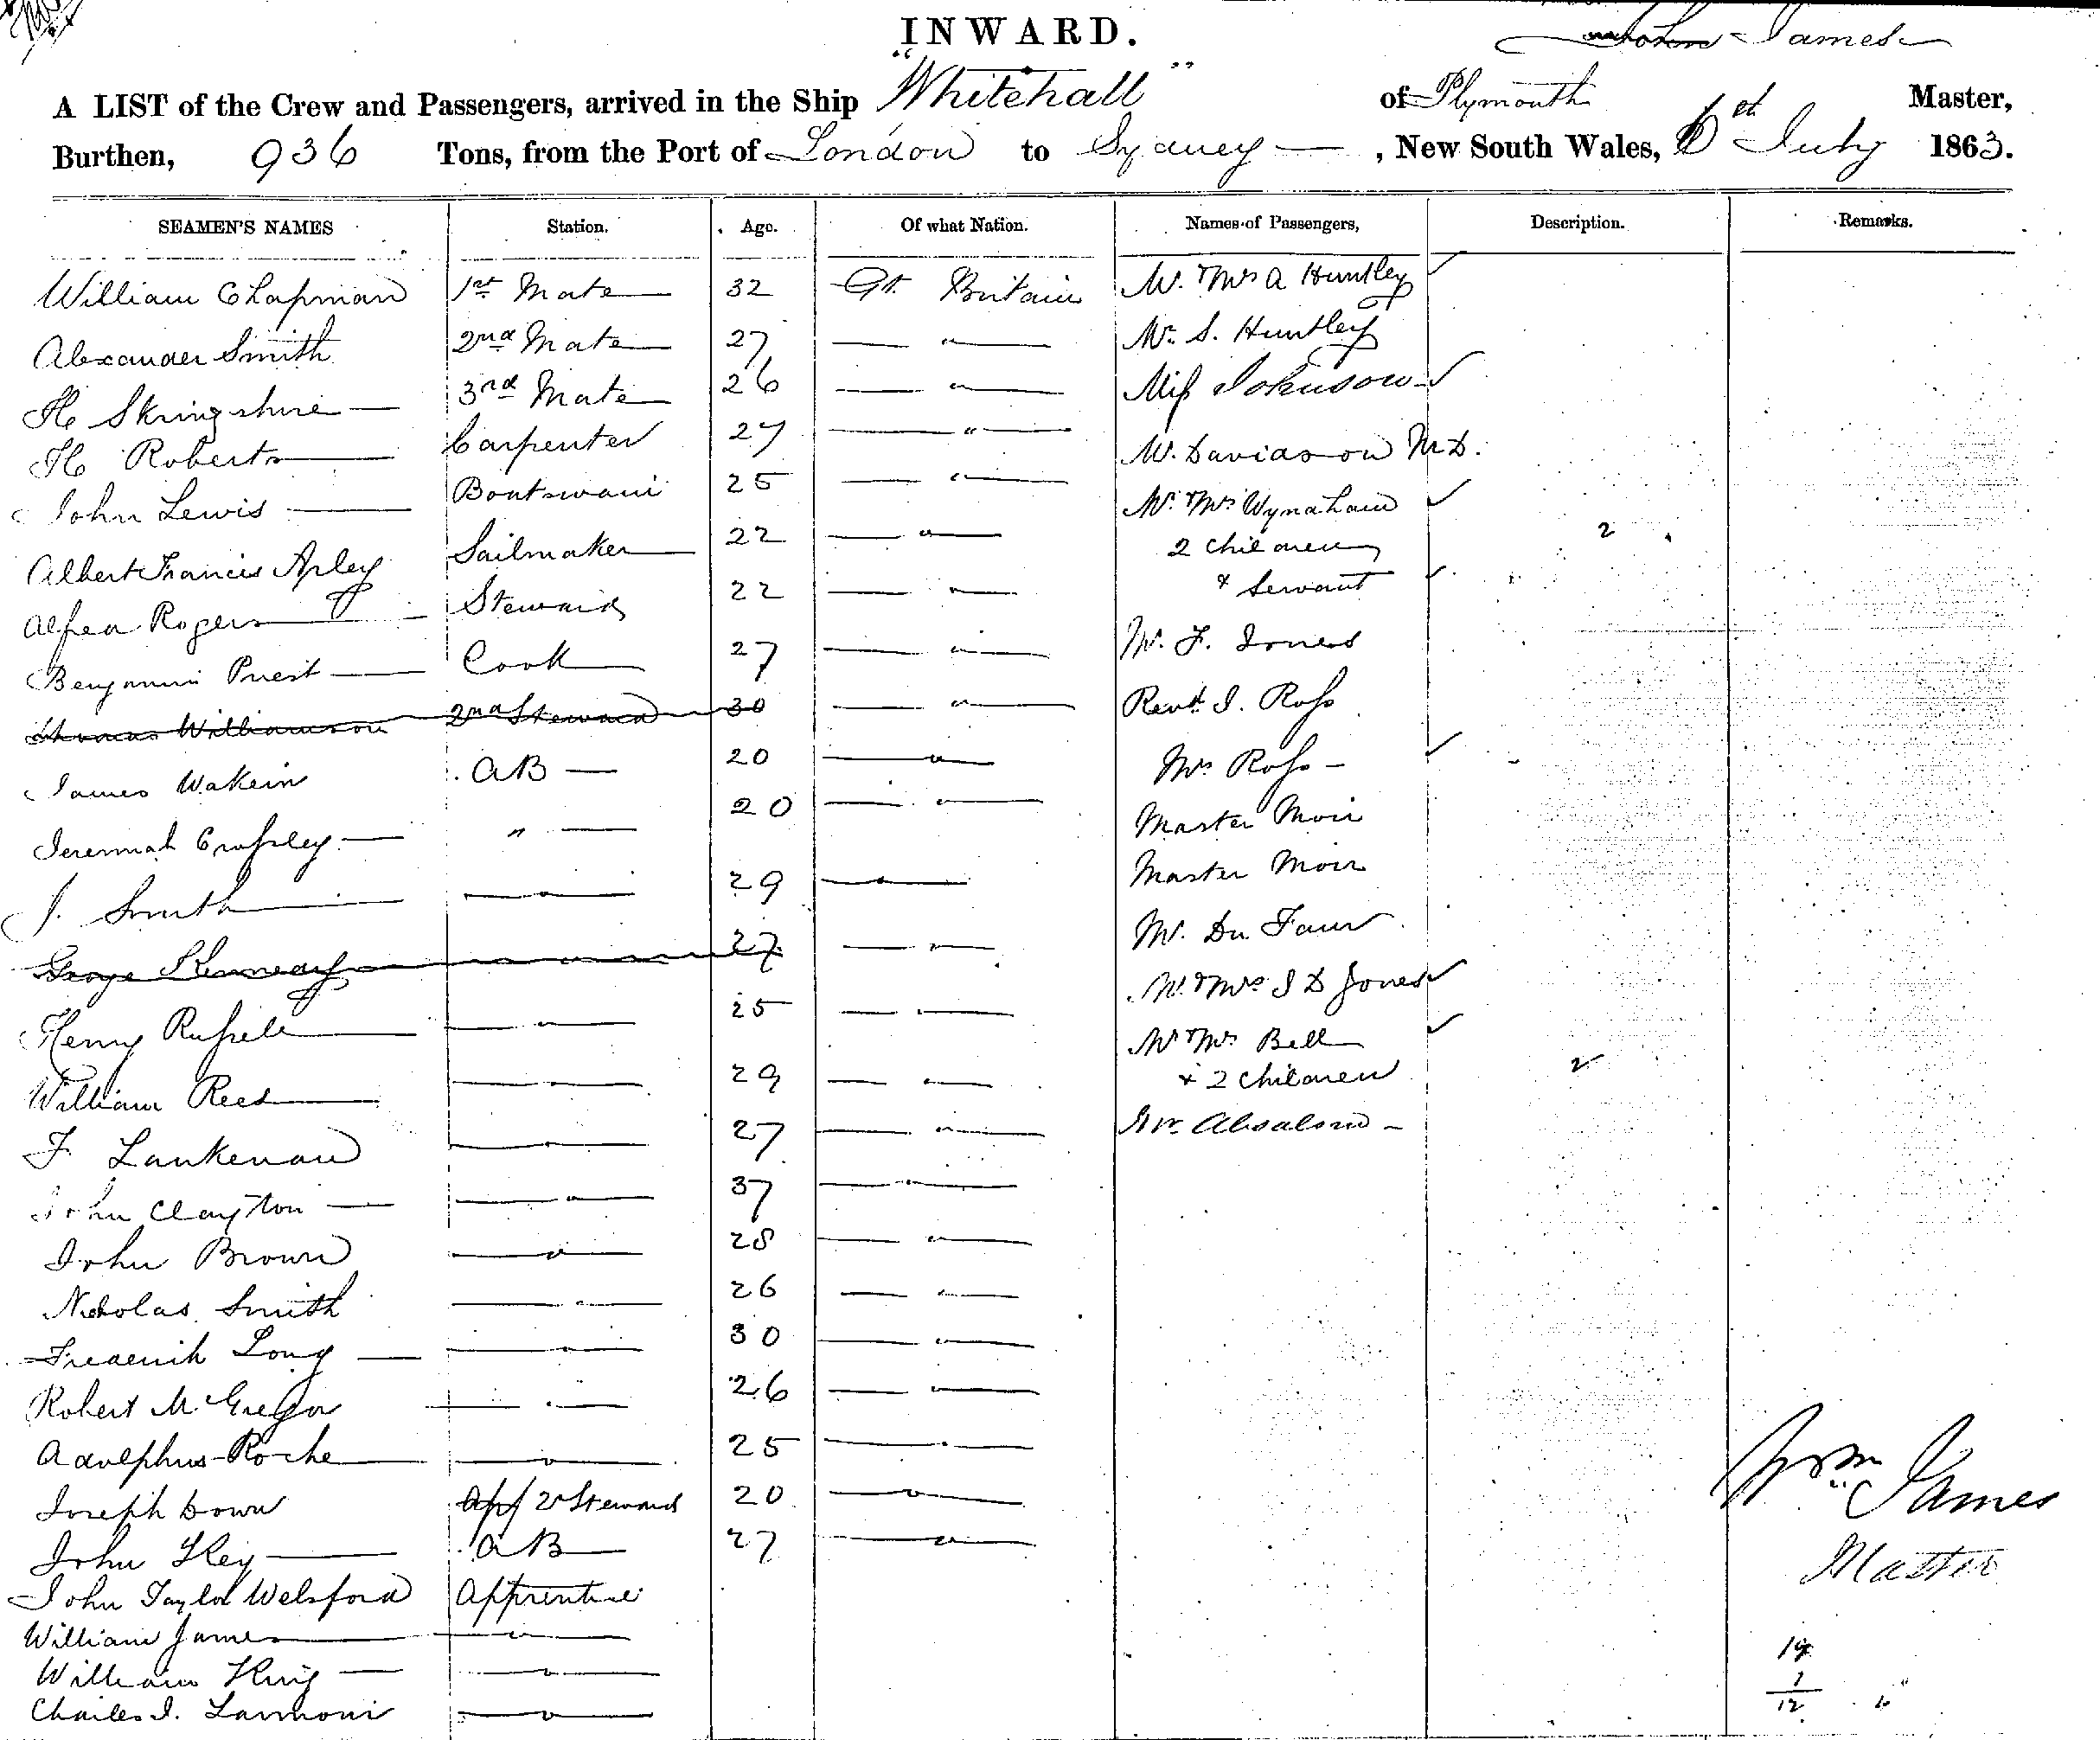 INWARD.
John James
A LIST of the Crew and Passengers, arrived in the Ship "Whitehall" of Plymouth Master,
Burthen, 936 Tons, from the Port of London to Sydney — , New South Wales, 6th July 1863.
SEAMEN'S NAMES Station. Age. Of what Nation. Names of Passengers, Description. Remarks.
William Chapman 1st Mate 32 Gt. Britain Mr. & Mrs A Huntley ✓
Alexander Smith 2nd Mate 27 — " — Mr. S. Huntley
H Skringshire — 3rd Mate 26 — " — Miss Johnson ✓
H Roberts — Carpenter 27 — " — Mr. Davidson M.D.
John Lewis — Boatswain 25 — " — Mr. & Mrs Wyndham ✓
Albert Francis Apley Sailmaker 22 — " — 2 Children 2
Alfred Rogers — Steward 22 — " — & Servant ✓
Benjamin Priest — Cook 27 — " — Mr. F. Jones
Thomas Williamson 2nd Steward 30 — " — Revd. J. Ross
James Wakein AB — 20 — " — Mrs Ross — ✓
Jeremiah Crossley — " — 20 — " — Master Moir
J. Smith — " — 29 — " — Master Moir
George Kennedy — " — 27 — " — Mr. Du Faur
Henry Russell — " — 25 — " — Mr. & Mrs J D Jones ✓
William Rees — " — 29 — " — Mr & Mrs Bell ✓
& 2 Children 2
F. Lankenau — " — 27 — " — Mr. Absalom —
John Clayton — " — 37 — " —
John Brown — " — 28 — " —
Nicholas Smith — " — 26 — " —
Frederick Long — " — 30 — " —
Robert McGregor — " — 26 — " —
Adolphus Roche — " — 25 — " —
Joseph Down 2d Steward 20 — " —
John Key — AB — 27 — " —
John Taylor Welsford Apprentice
William James — " —
William King — " —
Charles J. — " —
Wm James
Master
12